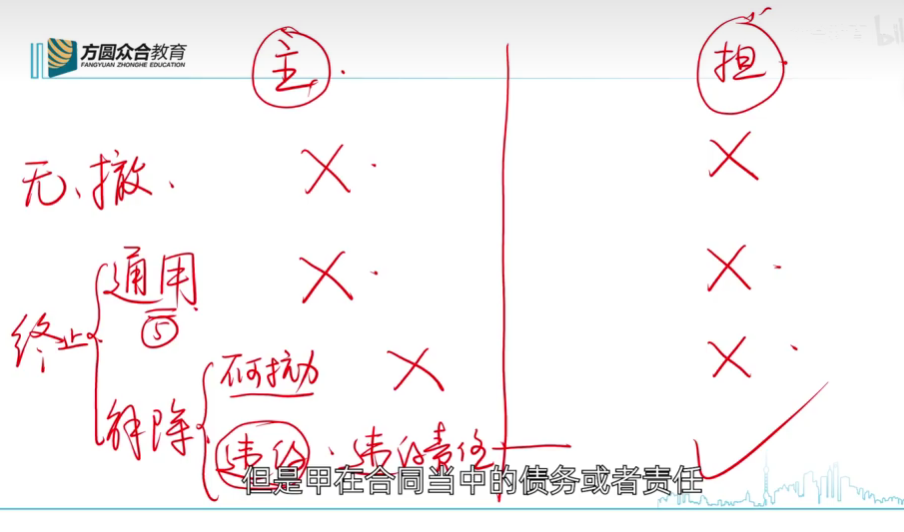 方圆众合教育
FANGYUAN ZHONGHE EDUCATION
主 担
无、撤、 × ×
终止 通用 × ×
⑤
解除 不可抗力 × ×
违约 违约责任 ✓
但是甲在合同当中的债务或者责任
bil